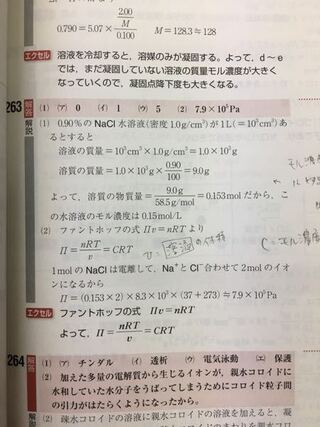 0.790 = 5.07 × 2.00/M / 0.100　M = 128.3 ≒ 128
エクセル 溶液を冷却すると，溶媒のみが凝固する。よって，d～e
では，まだ凝固していない溶液の質量モル濃度が大きく
なっていくので，凝固点降下度も大きくなる。
263 解答 (1) (ア) 0 (イ) 1 (ウ) 5 (2) 7.9×10⁵Pa
解説 (1) 0.90%のNaCl水溶液(密度1.0g/cm³)が1L(=10³cm³)あ
るとすると
溶液の質量＝10³cm³×1.0g/cm³＝1.0×10³g
溶質の質量＝1.0×10³g×0.90/100＝9.0g
よって，溶質の物質量＝9.0g/58.5g/mol＝0.153molだから，こ
の水溶液のモル濃度は0.15mol/L
(2) ファントホッフの式 Πv＝nRTより
Π＝nRT/v＝CRT
v＝溶液の体積
C＝モル濃度
1molのNaClは電離して，Na⁺とCl⁻合わせて2molのイオ
ンになるから
Π＝(0.153×2)×8.3×10³×(37＋273)≒7.9×10⁵Pa
エクセル ファントホッフの式 Πv＝nRT
よって，Π＝nRT/v＝CRT
264 解答 (1) (ア) チンダル (イ) 透析 (ウ) 電気泳動 (エ) 保護
(2) 加えた多量の電解質から生じるイオンが，親水コロイドに
水和していた水分子をうばってしまうためにコロイド粒子間
の引力がはたらくようになったから。
解説 (2) 疎水コロイドの溶液に親水コロイドの溶液を加えると，凝